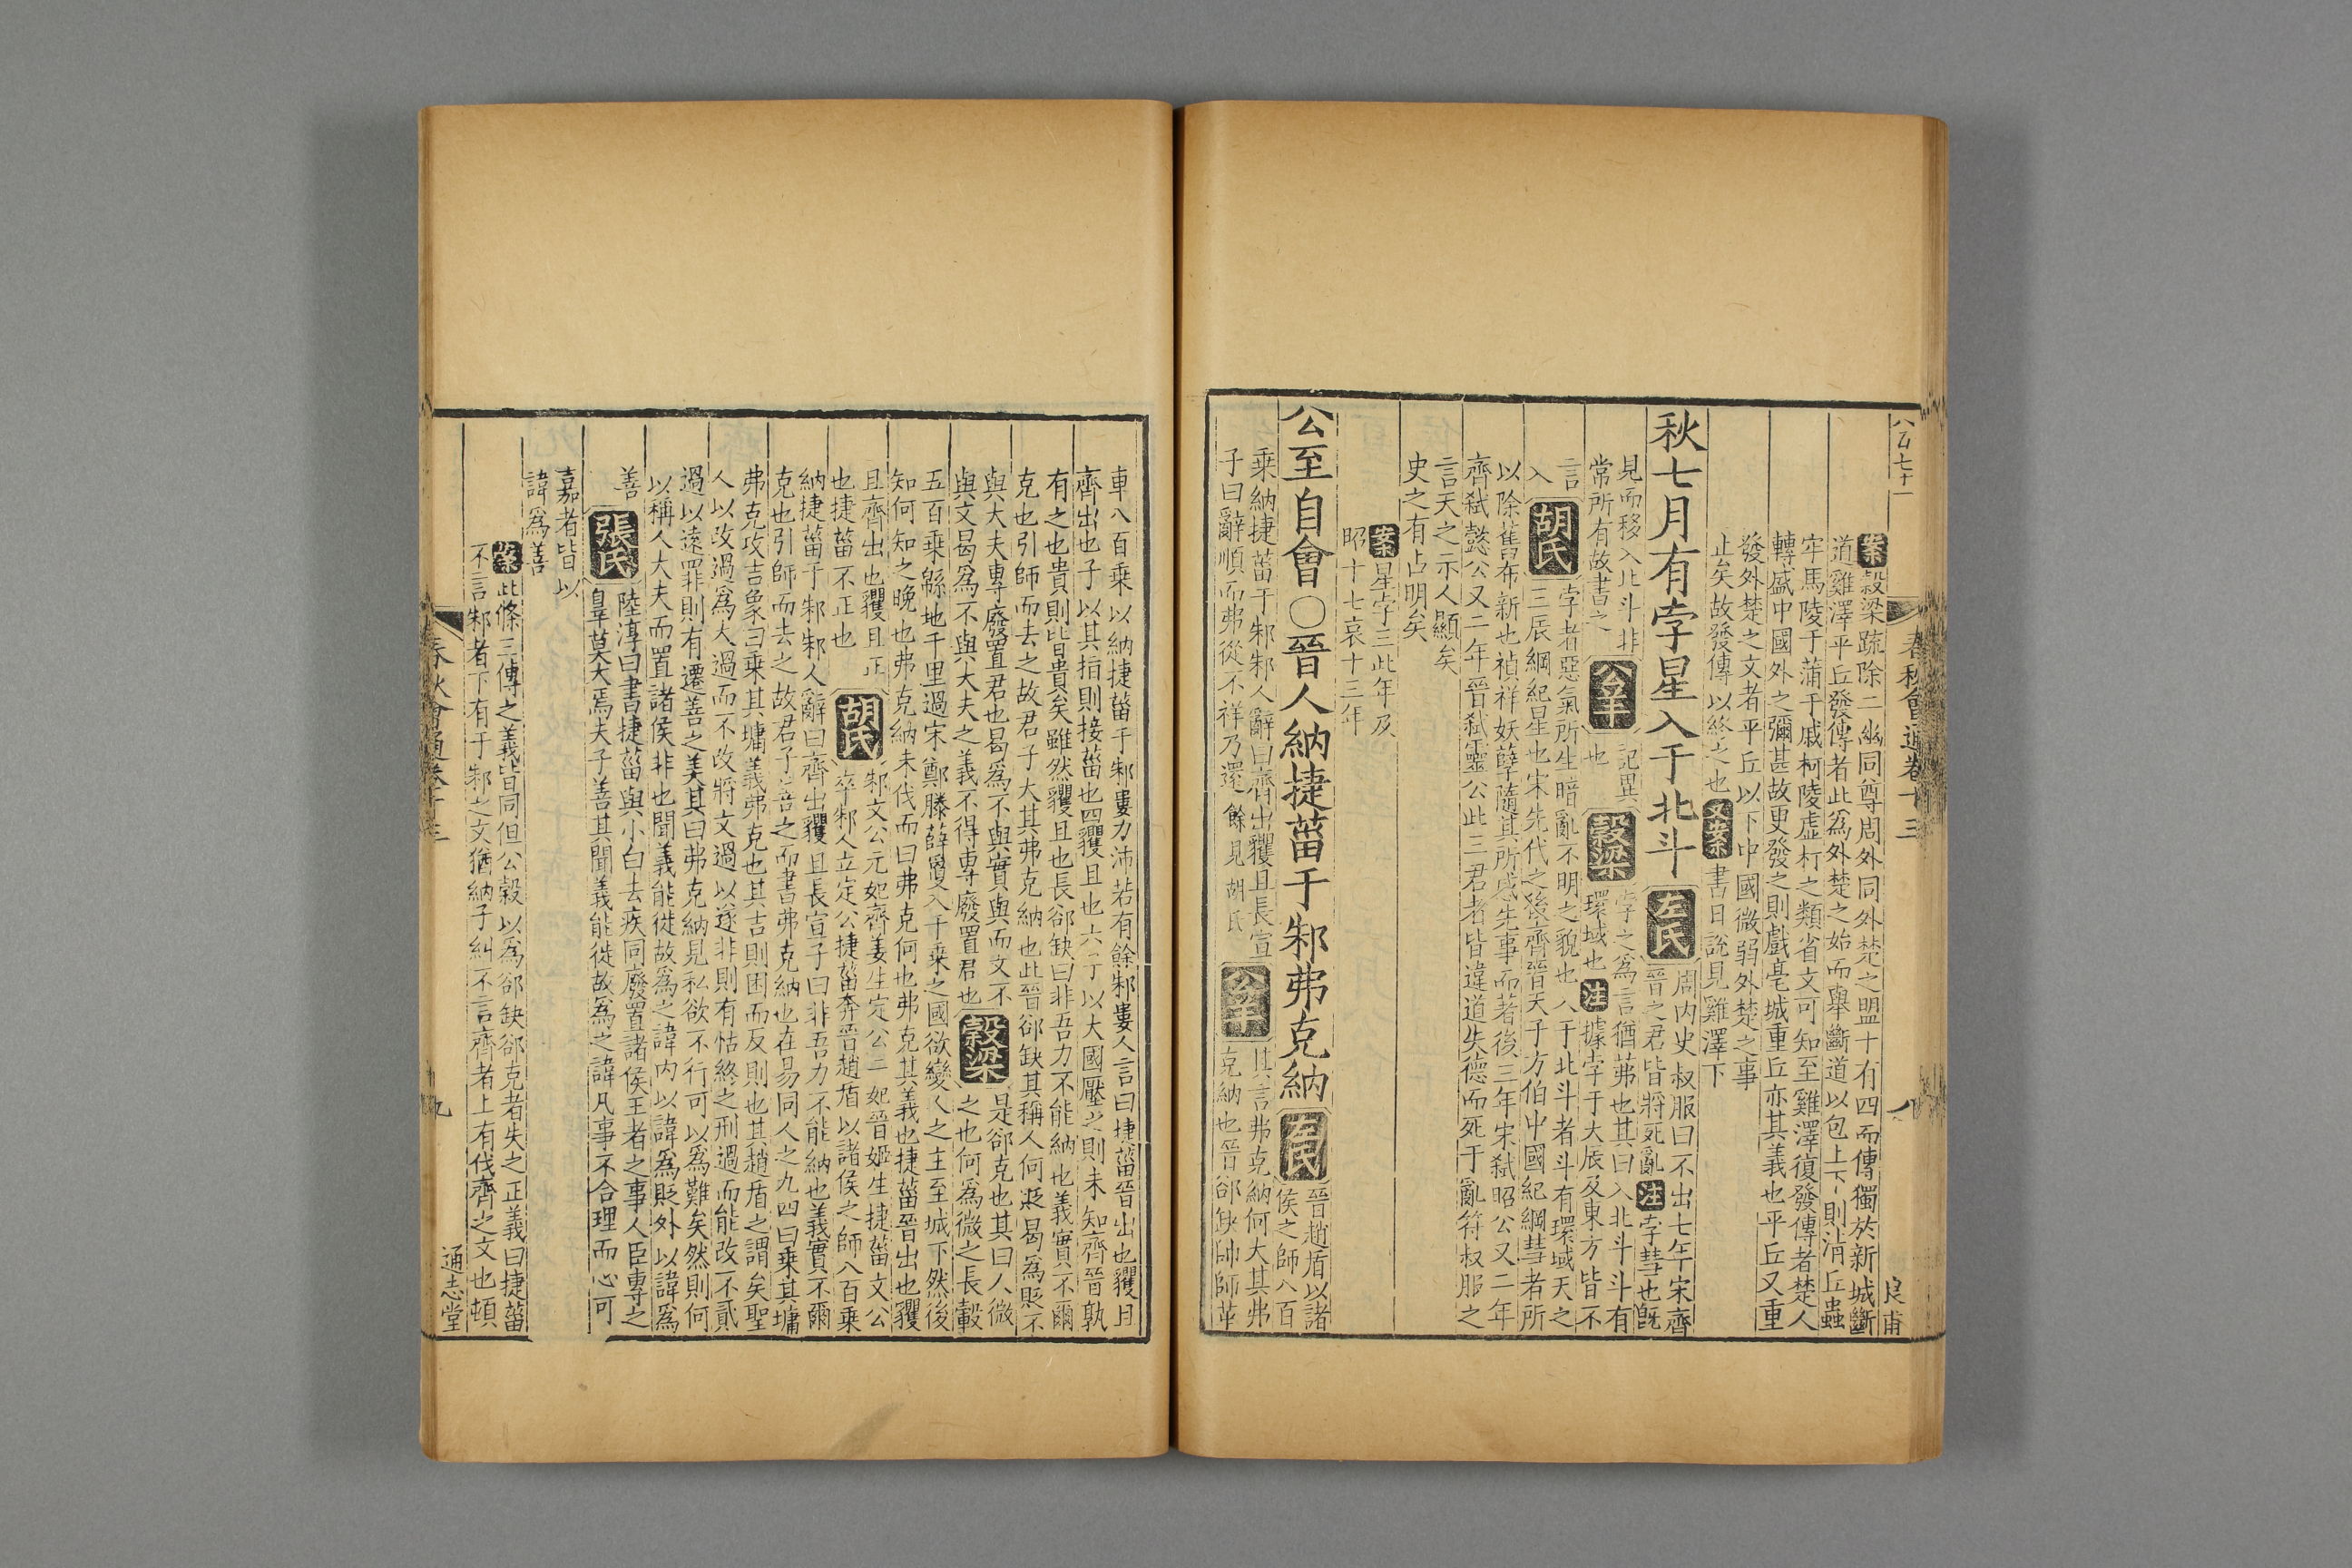 春秋會通卷十三
八
良甫
案穀梁疏除二幽同尊周外同外楚之盟十有四而傳獨於新城斷
道雞澤平丘發傳者此為外楚之始而舉斷道以包上下則清丘蟲
牢馬陵于蒲于戚柯陵虛朾之類省文可知至雞澤復發傳者楚人
轉盛中國外之彌甚故更發之則戲亳城重丘亦其義也平丘又重
發外楚之文者平丘以下中國微弱外楚之事
止矣故發傳以終之也又案書日說見雞澤下
秋七月有孛星入于北斗
左氏周内史叔服曰不出七年宋齊
晉之君皆將死亂注孛彗也旣
見而移入北斗非
常所有故書之
公羊記異
也
穀梁孛之爲言猶茀也其曰入北斗斗有
環域也注據孛于大辰及東方皆不
言
入
胡氏孛者惡氣所生暗亂不明之貌也入于北斗者斗有環域天之
三辰綱紀星也宋先代之後齊晉天子方伯中國紀綱彗者所
以除舊布新也禎祥妖孽隨其所感先事而著後三年宋弒昭公又二年
齊弒懿公又二年晉弒靈公此三君者皆違道失德而死于亂符叔服之
言天之示人顯矣
史之有占明矣
案星孛三此年及
昭十七哀十三年
公至自會○晉人納捷菑于邾弗克納
左氏晉趙盾以諸
侯之師八百
乘納捷菑于邾邾人辭曰齊出貜且長宣
子曰辭順而弗從不祥乃還餘見胡氏
公羊其言弗克納何大其弗
克納也晉郤缺帥師革
車八百乘以納捷菑于邾婁力沛若有餘邾婁人言曰捷菑晉出也貜且
齊出也子以其指則接菑也四貜且也六子以大國壓之則未知齊晉孰
有之也貴則皆貴矣雖然貜且也長郤缺曰非吾力不能納也義實不爾
克也引師而去之故君子大其弗克納也此晉郤缺其稱人何貶曷爲貶不
與大夫專廢置君也曷爲不與實與而文不
與文曷爲不與大夫之義不得專廢置君也
穀梁是郤克也其曰人微
之也何爲微之長轂
五百乘緜地千里過宋鄭滕薛敻入千乘之國欲變人之主至城下然後
知何知之晚也弗克納未伐而曰弗克何也弗克其義也捷菑晉出也貜
且齊出也貜且正
也捷菑不正也
胡氏邾文公元妃齊姜生定公二妃晉姬生捷菑文公
卒邾人立定公捷菑奔晉趙盾以諸侯之師八百乘
納捷菑于邾邾人辭曰齊出貜且長宣子曰非吾力不能納也義實不爾
克也引師而去之故君子善之而書弗克納也在易同人之九四曰乘其墉
弗克攻吉象曰乘其墉義弗克也其吉則困而反則也其趙盾之謂矣聖
人以改過爲大過而不改將文過以遂非則有怙終之刑過而能改不貳
過以遠罪則有遷善之美其曰弗克納見私欲不行可以爲難矣然則何
以稱人大夫而置諸侯非也聞義能徙故爲之諱内以諱爲貶外以諱爲
善
張氏陸淳曰書捷菑與小白去疾同廢置諸侯王者之事人臣專之
辠莫大焉夫子善其聞義能徙故爲之諱凡事不合理而心可
嘉者皆以
諱爲善
案此條三傳之義皆同但公穀以爲郤缺郤克者失之正義曰捷菑
不言邾者下有于邾之文猶納子糾不言齊者上有伐齊之文也頓
春秋會通卷十三
九
通志堂